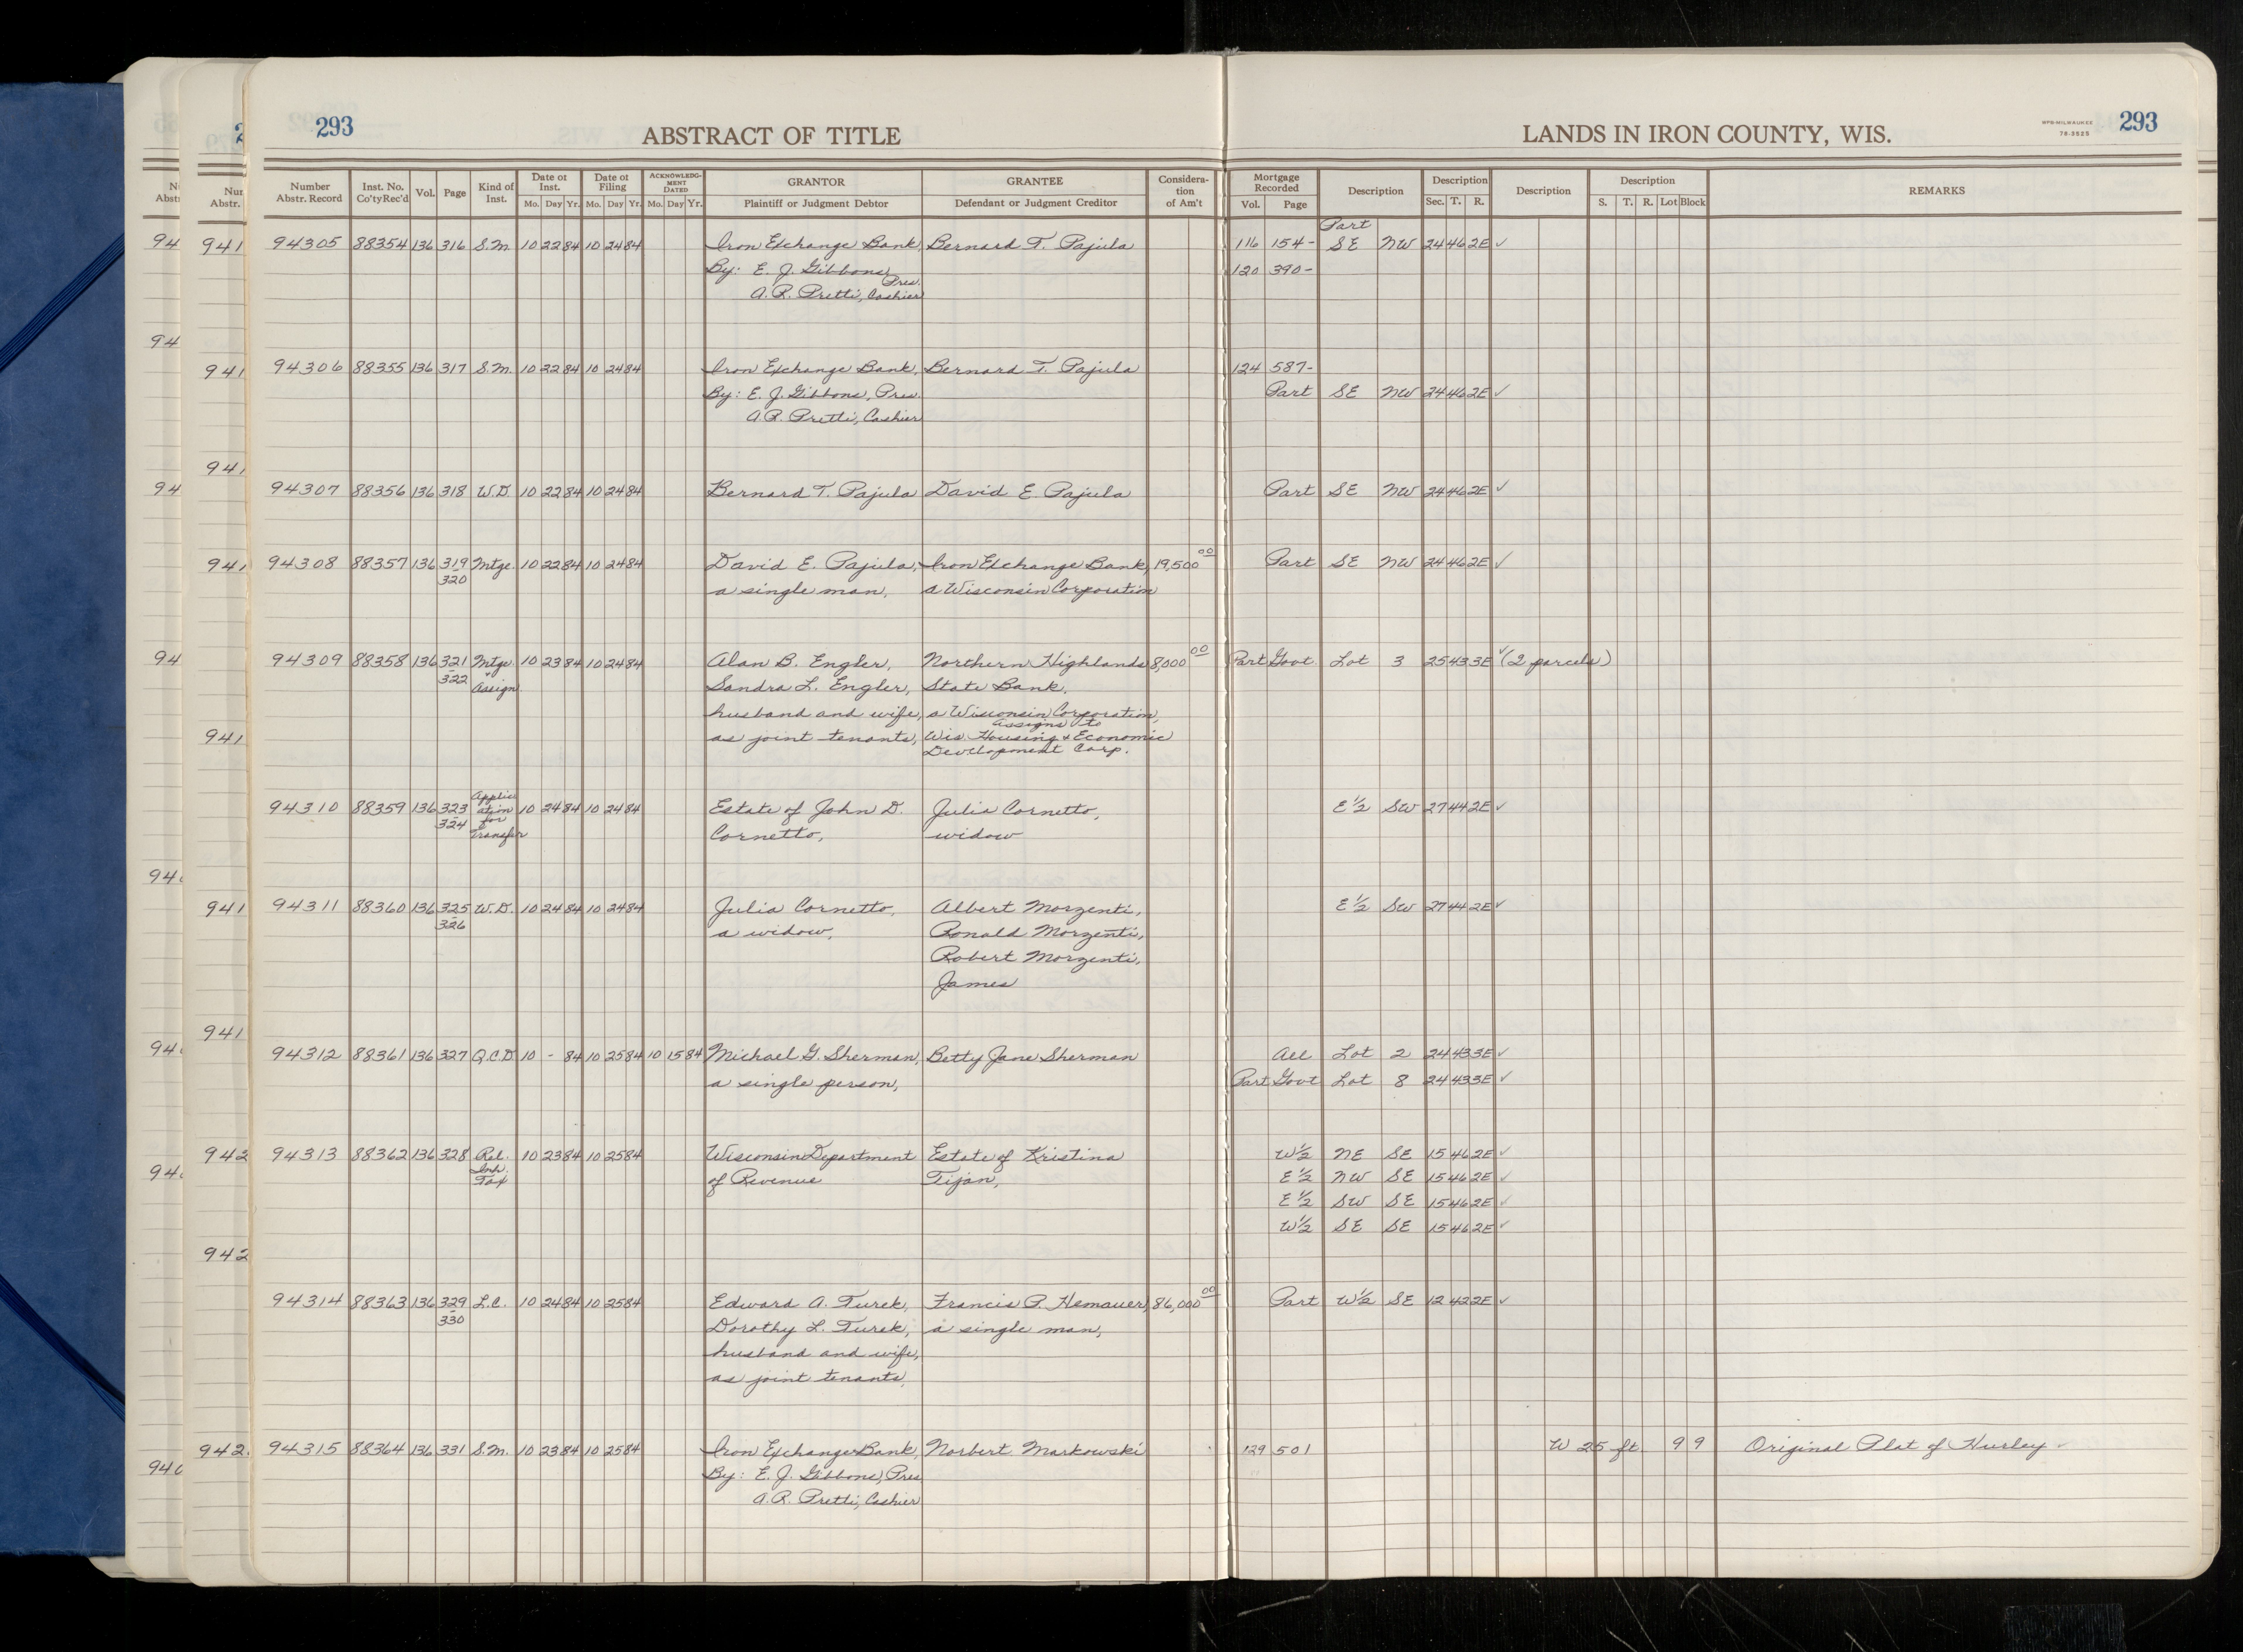 293
ABSTRACT OF TITLE
LANDS IN IRON COUNTY, WIS.
MPB-MILWAUKEE
78-3525
293
Number Abstr. Record | Inst. No. Co'ty Rec'd | Vol. | Page | Kind of Inst. | Date of Inst. Mo. Day Yr. | Date of Filing Mo. Day Yr. | ACKNOWLEDGMENT DATED Mo. Day Yr. | GRANTOR Plaintiff or Judgment Debtor | GRANTEE Defendant or Judgment Creditor | Consideration of Am't | Mortgage Recorded Vol. Page | Description | Description Sec. T. R. | Description | Description S. T. R. Lot Block | REMARKS
Part
94305 88354 136 316 S.M. 10 22 84 10 24 84 Iron Exchange Bank, Bernard T. Pajula 116 154- SE NW 24 46 2E ✓
By: E. J. Gibbons, Pres. 120 390-
A. R. Pretti, Cashier
94306 88355 136 317 S.M. 10 22 84 10 24 84 Iron Exchange Bank, Bernard T. Pajula 124 587-
By: E. J. Gibbons, Pres. Part SE NW 24 46 2E ✓
A. R. Pretti, Cashier
94307 88356 136 318 W.D. 10 22 84 10 24 84 Bernard T. Pajula David E. Pajula Part SE NW 24 46 2E ✓
94308 88357 136 319 Mtge. 10 22 84 10 24 84 David E. Pajula, Iron Exchange Bank, 19,500 00 Part SE NW 24 46 2E ✓
- 320 a single man, a Wisconsin Corporation
94309 88358 136 321 Mtge. 10 23 84 10 24 84 Alan B. Engler, Northern Highlands 8,000 00 Part Govt. Lot 3 25 43 3E ✓ (2 parcels)
- 322 + Assign. Sandra L. Engler, State Bank,
husband and wife, a Wisconsin Corporation,
assigns to
as joint tenants, Wis. Housing + Economic
Development Corp.
94310 88359 136 323 Application for Transfer 10 24 84 10 24 84 Estate of John D. Julia Cornetto, E½ SW 27 44 2E ✓
- 324 Cornetto, widow
94311 88360 136 325 W.D. 10 24 84 10 24 84 Julia Cornetto, Albert Morzenti, E½ SW 27 44 2E ✓
- 326 a widow, Ronald Morzenti,
Robert Morzenti,
James
94312 88361 136 327 Q.C.D. 10 - 84 10 25 84 10 15 84 Michael G. Sherman, Betty Jane Sherman All Lot 2 24 43 3E ✓
a single person, Part Govt Lot 8 24 43 3E ✓
94313 88362 136 328 Rel. 10 23 84 10 25 84 Wisconsin Department Estate of Kristina W½ NE SE 15 46 2E ✓
Inh. Tax of Revenue Tijan, E½ NW SE 15 46 2E ✓
E½ SW SE 15 46 2E ✓
W½ SE SE 15 46 2E ✓
94314 88363 136 329 L.C. 10 24 84 10 25 84 Edward A. Turek, Francis P. Hemauer, 86,000 00 Part W½ SE 12 42 2E ✓
- 330 Dorothy L. Turek, a single man,
husband and wife,
as joint tenants,
94315 88364 136 331 S.M. 10 23 84 10 25 84 Iron Exchange Bank, Norbert Markowski 129 501 W 25 ft. 9 9 Original Plat of Hurley ✓
By: E. J. Gibbons, Pres
A. R. Pretti, Cashier